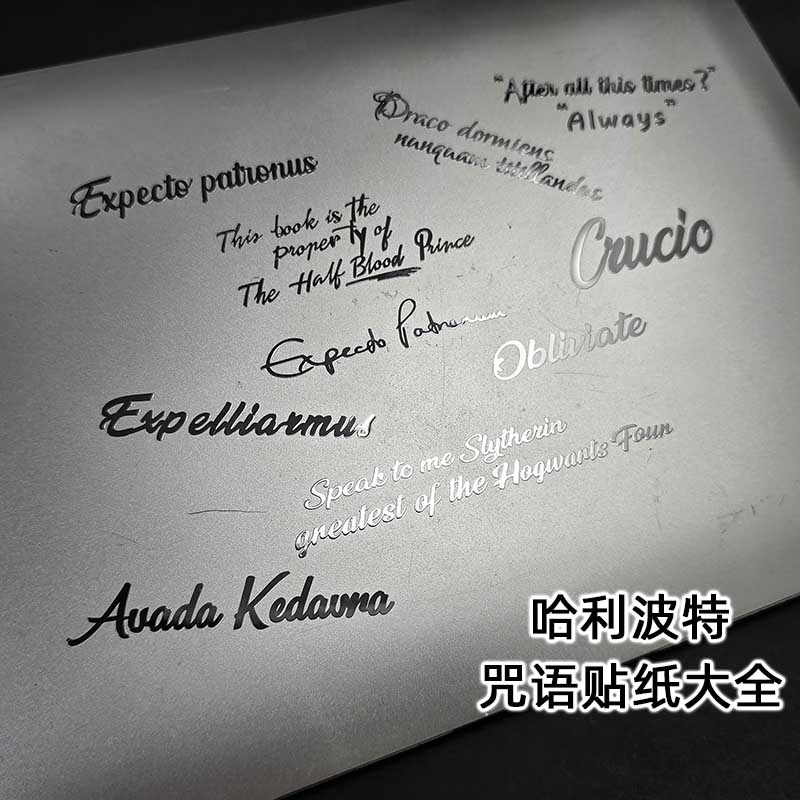 "After all this times?"
"Always"
Draco dormiens
nunquam titillandus
Expecto patronus
This book is the
property of
The Half Blood Prince
Crucio
Expecto Patronum
Obliviate
Expelliarmus
Speak to me Slytherin
greatest of the Hogwarts Four
Avada Kedavra
哈利波特
咒语贴纸大全